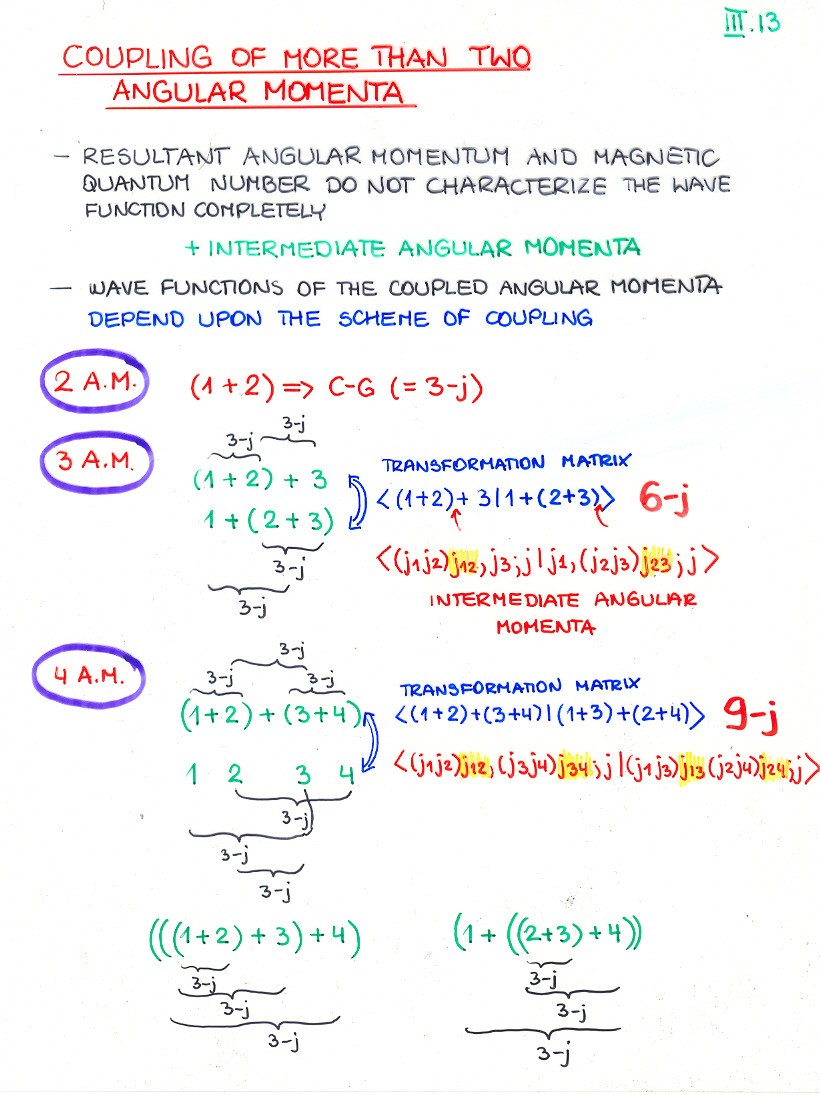 III.13
COUPLING OF MORE THAN TWO
ANGULAR MOMENTA
– RESULTANT ANGULAR MOMENTUM AND MAGNETIC
QUANTUM NUMBER DO NOT CHARACTERIZE THE WAVE
FUNCTION COMPLETELY
+ INTERMEDIATE ANGULAR MOMENTA
– WAVE FUNCTIONS OF THE COUPLED ANGULAR MOMENTA
DEPEND UPON THE SCHEME OF COUPLING
2 A.M. (1+2) => C-G (= 3-j)
3-j
3-j
3 A.M. TRANSFORMATION MATRIX
(1+2) + 3 <(1+2)+3|1+(2+3)> 6-j
1 + (2+3)
3-j <(j1j2)j12,j3;j|j1,(j2j3)j23;j>
3-j INTERMEDIATE ANGULAR
MOMENTA
3-j
4 A.M. 3-j 3-j TRANSFORMATION MATRIX
(1+2) + (3+4) <(1+2)+(3+4)|(1+3)+(2+4)> 9-j
1 2 3 4 <(j1j2)j12,(j3j4)j34;j|(j1j3)j13(j2j4)j24;j>
3-j
3-j
3-j
(((1+2)+3)+4) (1+((2+3)+4))
3-j 3-j
3-j 3-j
3-j 3-j